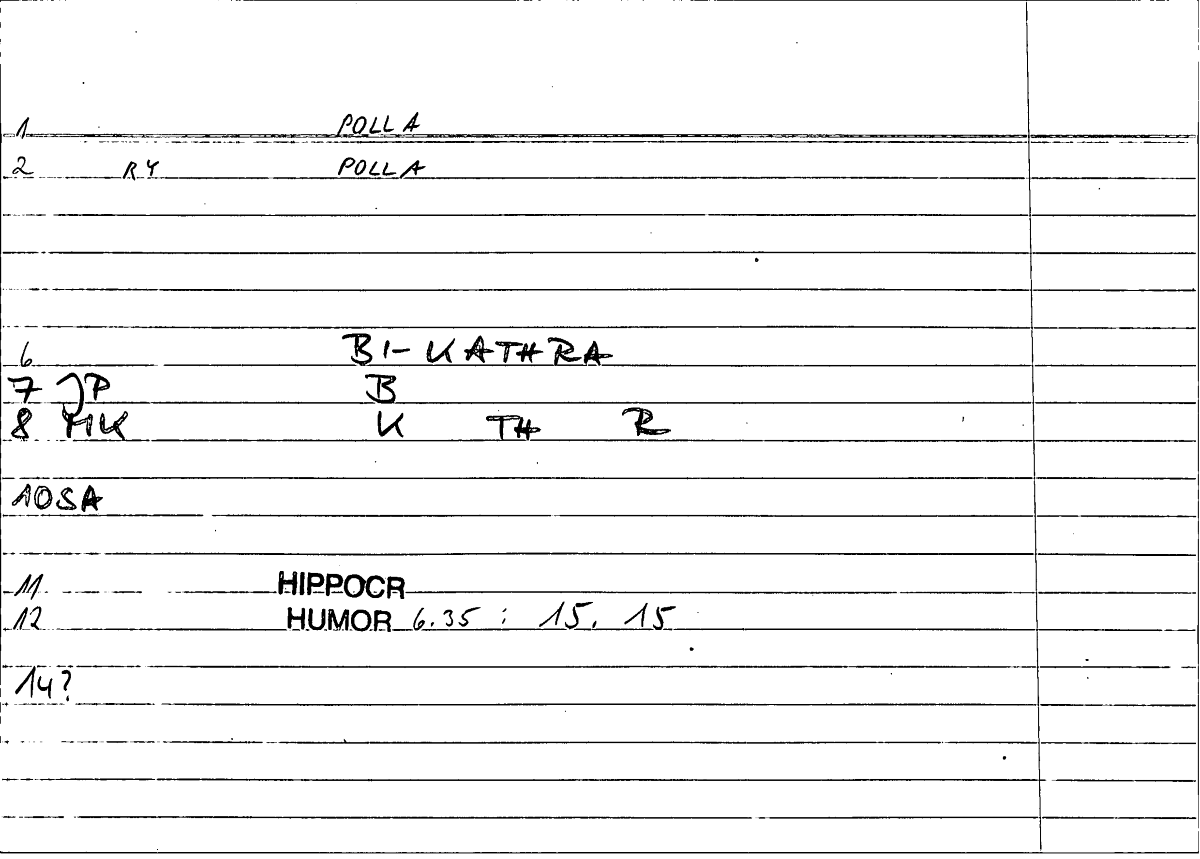 1 POLLA
2 RY POLLA
6 BI-KATHRA
7 JP B
8 MK K TH R
10 SA
11 HIPPOCR
12 HUMOR 6.35 : 15. 15
14?